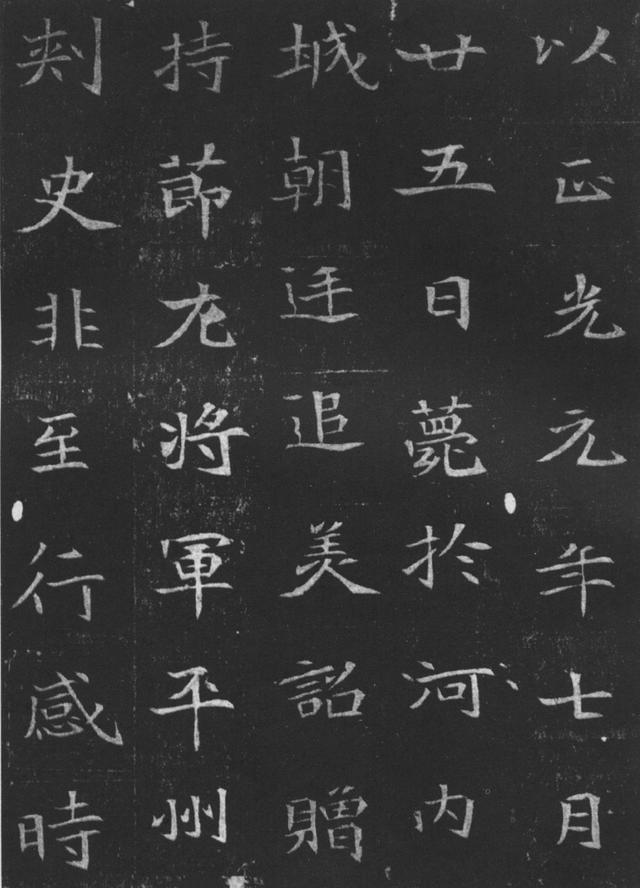 以正光元年七月
廿五日薨於河内
城朝廷追美詔贈
持節左將軍平州
刾史非至行感時